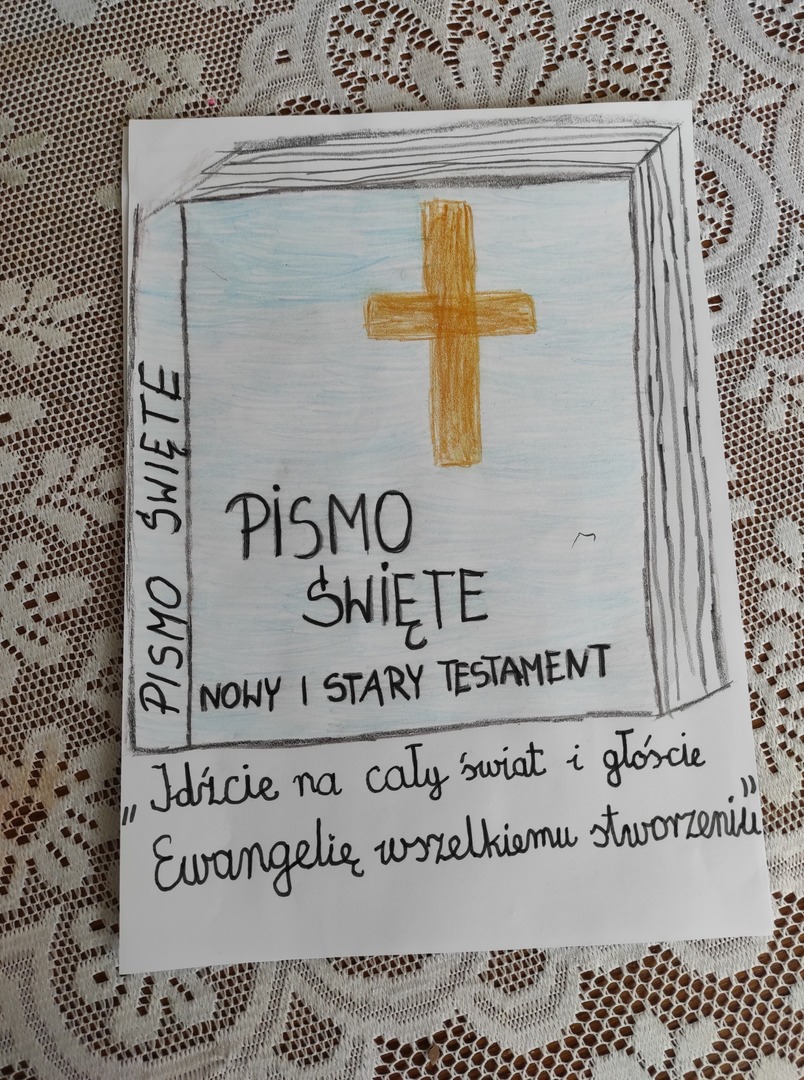 PISMO ŚWIĘTE
PiSMO
ŚWiĘTE
NOWY I STARY TESTAMENT
„Idźcie na cały świat i głoście
Ewangelię wszelkiemu stworzeniu”